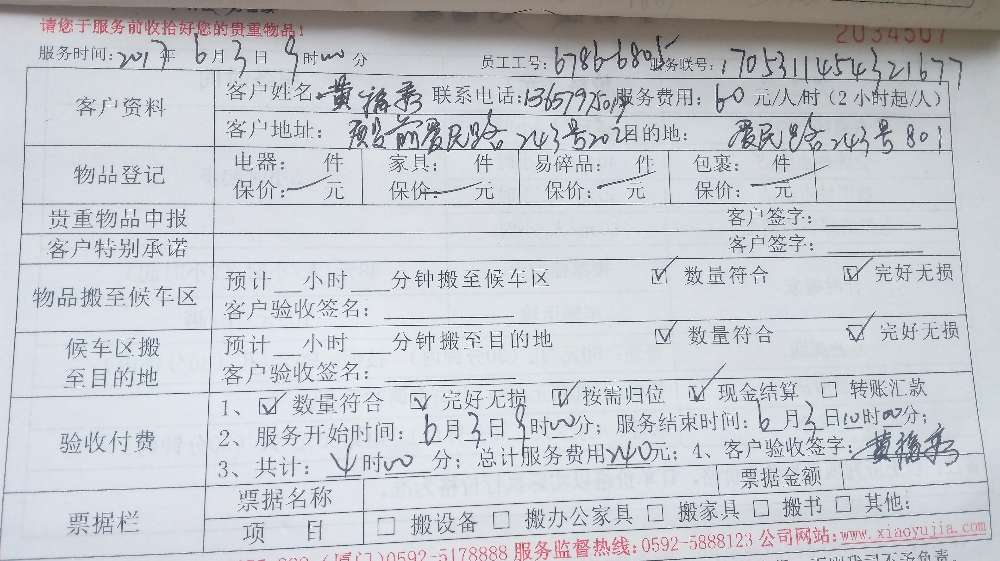 请您于服务前收拾好您的贵重物品!
2034507
服务时间: 2017年 6月 3日 9时00分 员工工号: 6786-6805 服务联号: 1705311454321677
客户资料 客户姓名: 黄 联系电话: 服务费用: 60 元/人/时(2小时起/人)
客户地址: 爱民路243号202 目的地: 爱民路243号801
物品登记 电器: 件 家具: 件 易碎品: 件 包裹: 件
保价: 元 保价: 元 保价: 元 保价: 元
贵重物品申报 客户签字:
客户特别承诺 客户签字:
物品搬至候车区 预计 小时 分钟搬至候车区 ☑ 数量符合 ☑ 完好无损
客户验收签名:
候车区搬至目的地 预计 小时 分钟搬至目的地 ☑ 数量符合 ☑ 完好无损
客户验收签名:
验收付费 1、☑ 数量符合 ☑ 完好无损 ☑ 按需归位 ☑ 现金结算 □ 转账汇款
2、服务开始时间: 6月3日9时00分; 服务结束时间: 6月3日10时00分;
3、共计: 4时00分; 总计服务费用240元; 4、客户验收签字: 黄
票据栏 票据名称 票据金额
项 目 □ 搬设备 □ 搬办公家具 □ 搬家具 □ 搬书 □ 其他:
(厦门)0592-5178888 服务监督热线:0592-5888123 公司网站:www.xiaoyujia.com